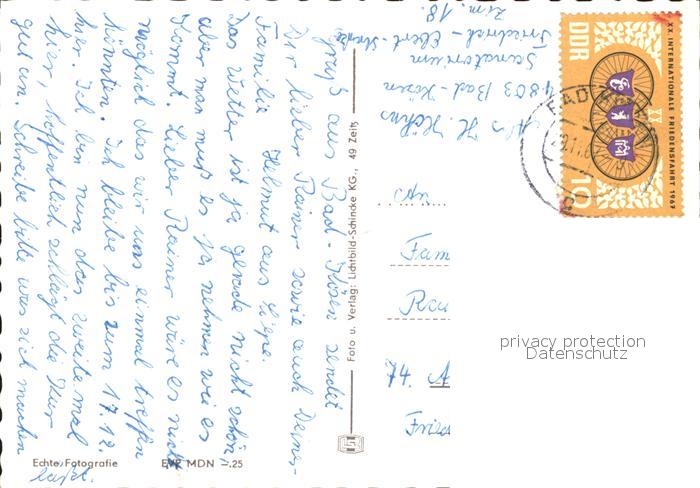 Gruß aus Bad-Kösen sendet
Dir lieber Rainer sowie auch Deiner
Familie Helmut aus
Das Wetter ist ja gerade nicht schön,
aber man muß es ja nehmen wie es
kommt. Lieber Rainer wäre es nicht
möglich das wir uns einmal treffen
könnten. Ich bleibe bis zum 17.12.
hier. Ich bin nun das zweite mal
hier, hoffentlich schlägt die Kur
gut an. Schreibe bitte was sich machen
läßt.
Echte Fotografie EVP MDN -.25
Foto u. Verlag: Lichtbild-Schincke KG., 49 Zeitz
Abs H.
4803 Bad-Kösen
Sanatorium
Friedrich-Ebert-Straße
Zim. 18.
An
Fam
74. A
Fried
XX. INTERNATIONALE FRIEDENSFAHRT 1967
XX
DDR
10
BAD
privacy protection
Datenschutz